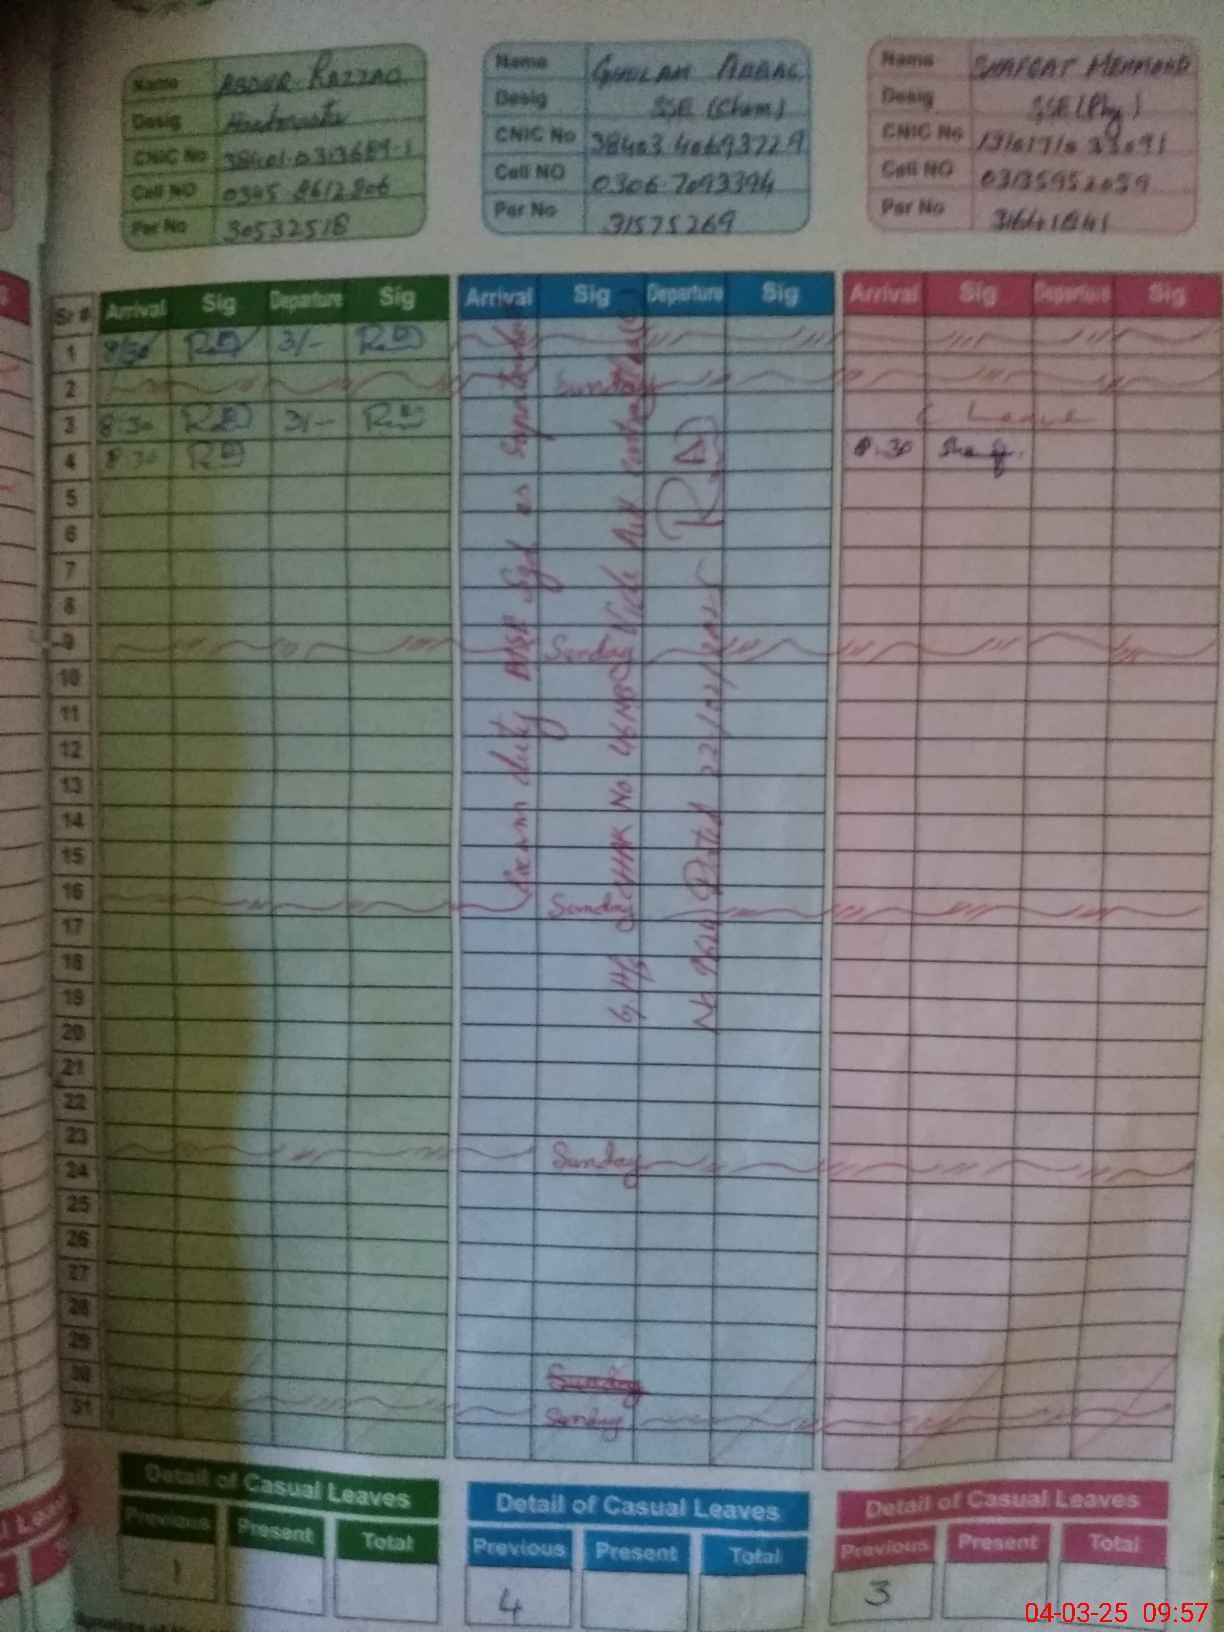 Name ABDUR RAZZAQ
Desig
CNIC No 38401-0313689-1
Cell NO 0345 8612806
Per No 30532518
Name GHULAM ABBAS
Desig SSE (Chem)
CNIC No 38403 4069372 9
Cell NO 0306-7093394
Per No 31575269
Name SHAFQAT MEHMOOD
Desig SSE (Phy)
CNIC No
Cell NO 03135952059
Per No
Sr # Arrival Sig Departure Sig Arrival Sig Departure Sig Arrival Sig Departure Sig
1 3/-
2 Sunday
3 8:30 3/- C Leave
4 8:30 8:30
5
6
7
8
9 Sunday
10
11
12
13
14
15
16 Sunday
17
18
19
20
21
22
23 Sunday
24
25
26
27
28
29
30 Sunday
31 Sunday
Exam duty BISE Sgd as
G.H/S CHAK No 46 NB Vide
Dated 22/02/2025
Detail of Casual Leaves
Previous Present Total
1
Detail of Casual Leaves
Previous Present Total
4
Detail of Casual Leaves
Previous Present Total
3
04-03-25 09:57